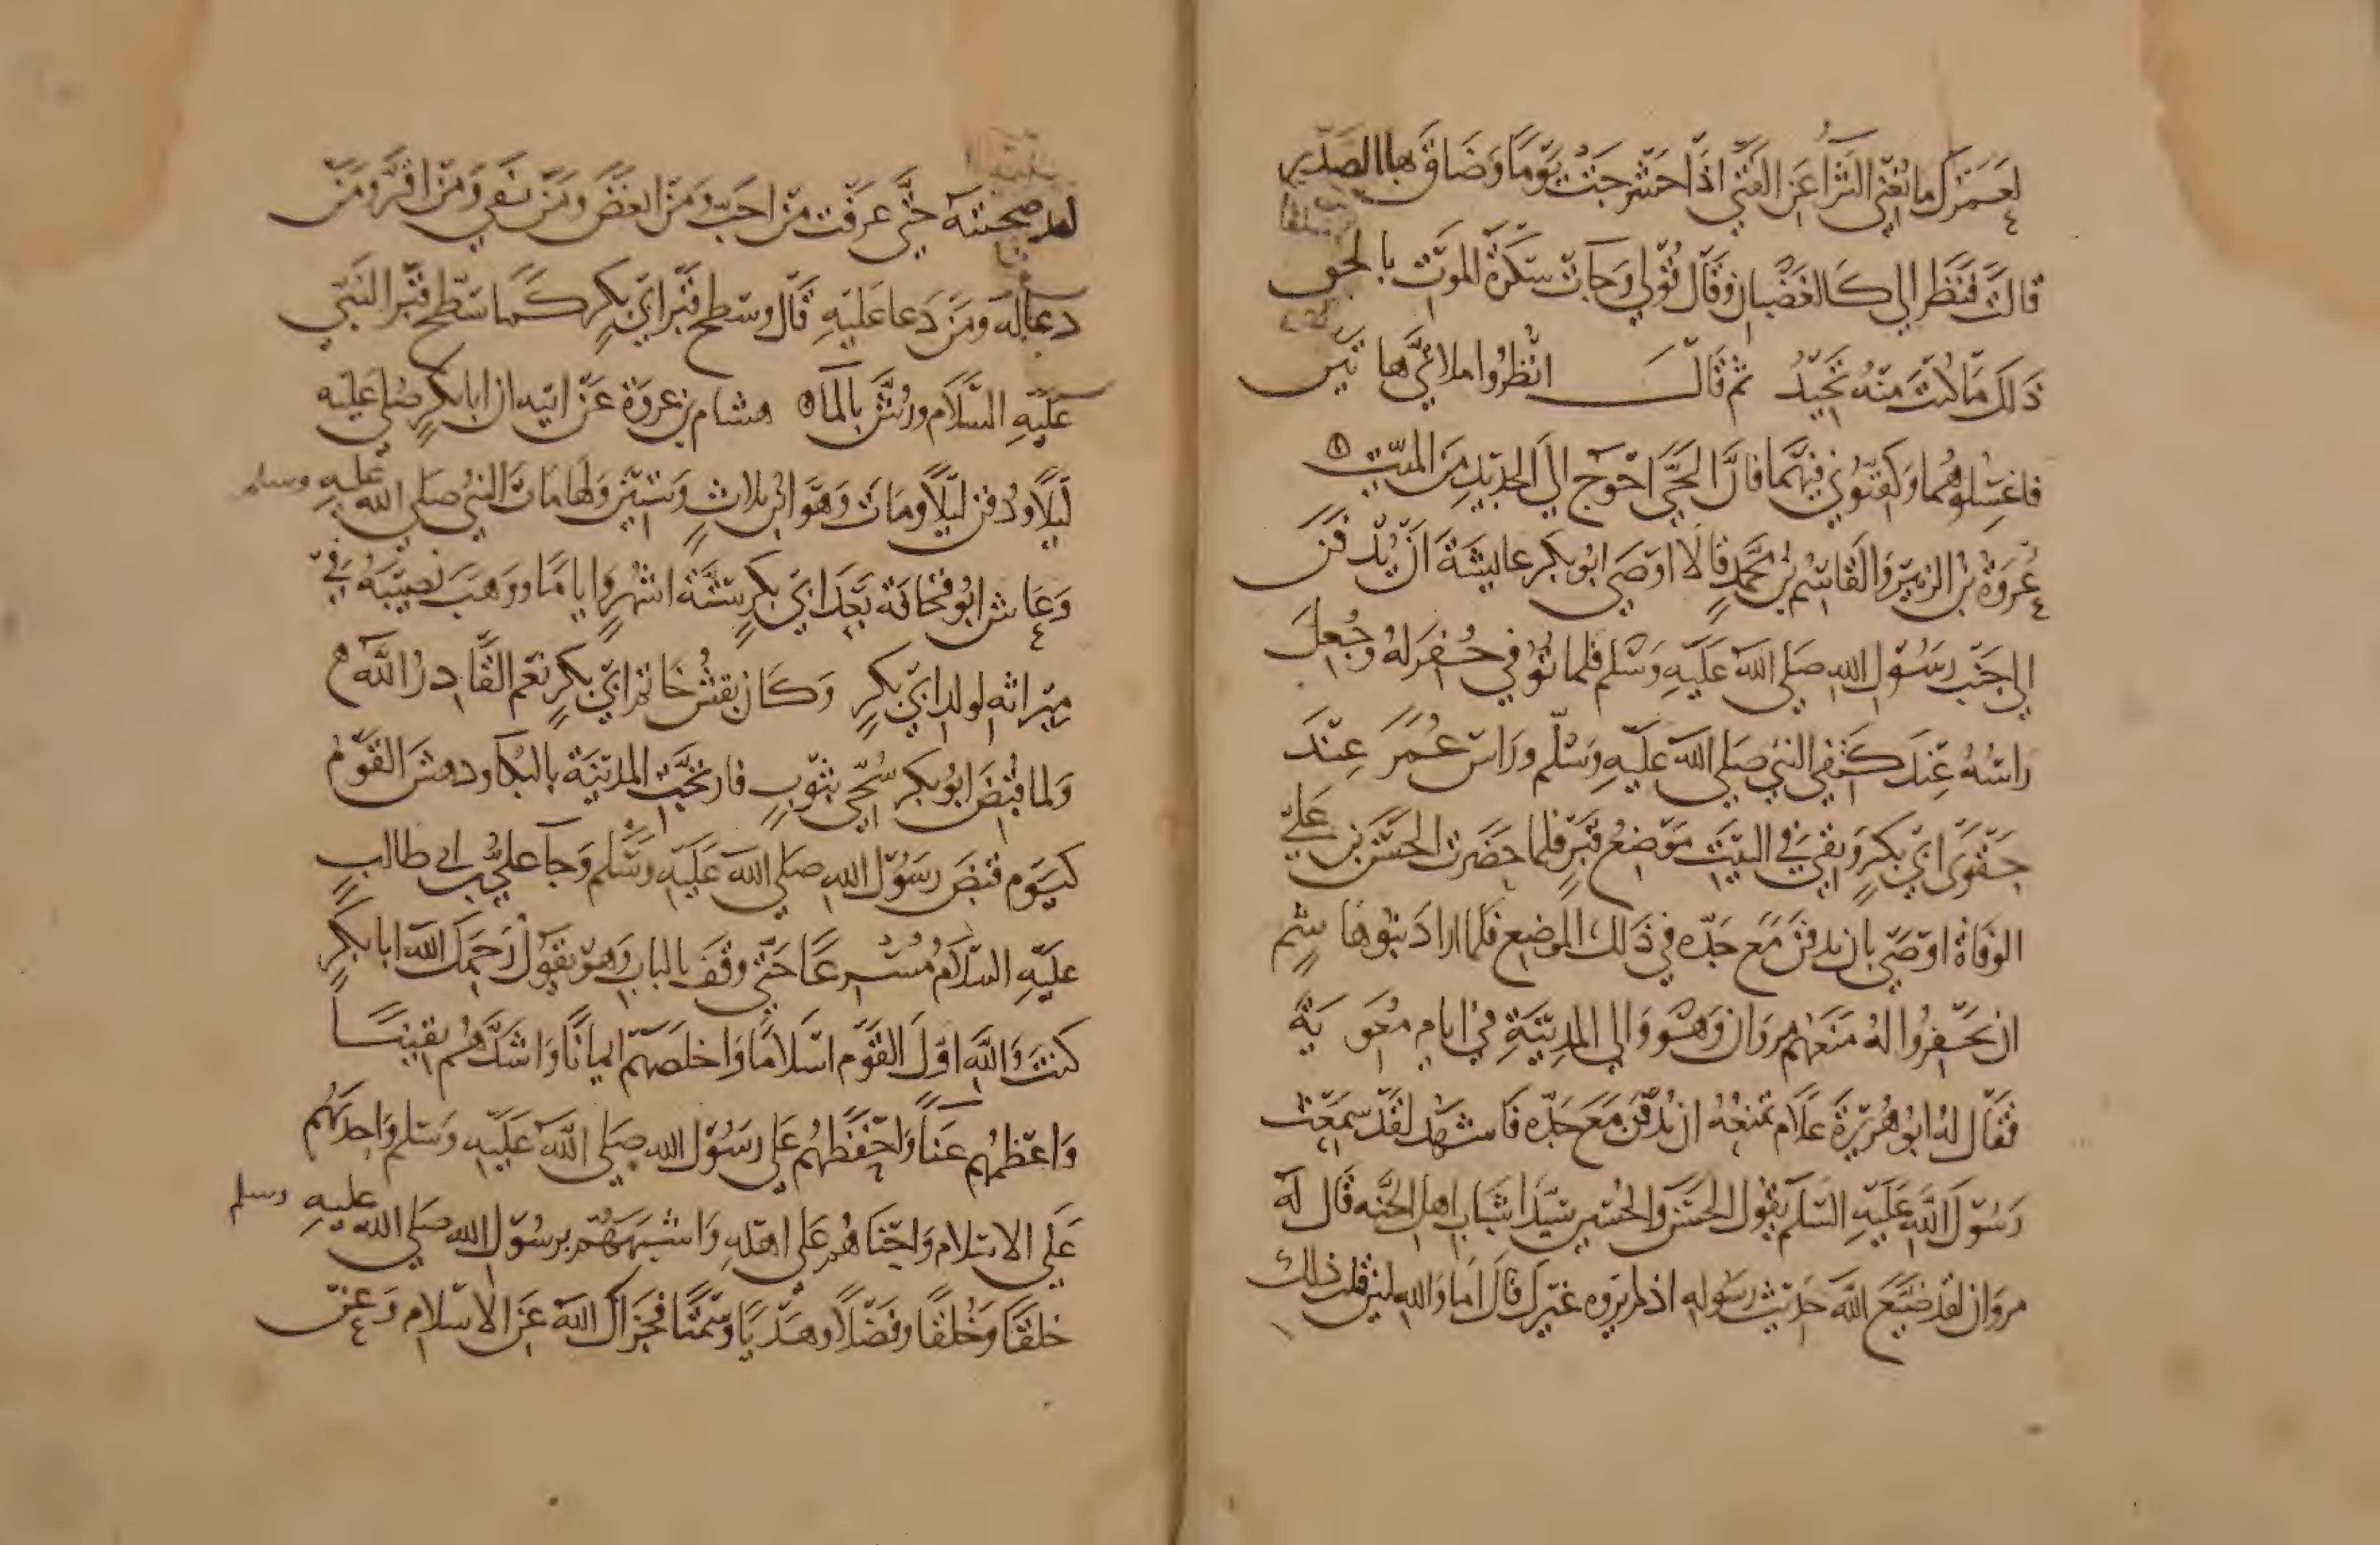 لعَمَرُك ما يُغني الثرَاءُ عَن الفَتَى اذَا حَشرجَتْ يَومًا وَضَاقَ بها الصَدر
قالت فَنظَر الي كَالغَضْبان وَقال قُولي وَجَات سَكرَة الموَت بالحق
ذَلكَ مَا كنتَ منهُ تحيدُ ثم قَالَ انظُرُوا ملاءَتيَّ هاتين
فاغسِلُوهُما وَكفنُوني فيهمَا فانَّ الحَيَّ احْوَج الى الجديدِ مِنَ الميت
عُروَة بن الزبير وَالقَاسِم بن مُحَمدٍ قالا اوصَى ابُو بكر عايشَةَ أن يُدفَنَ
الى جَنْب رَسُول الله صَلى الله عَليهِ وَسَلم فلما تُوُفي حُفِرَ لهُ وجُعِلَ
راسُهُ عِندَ كَتفي النبي صَلى الله عَليهِ وَسَلم ورَاس عُمَرَ عِندَ
حِقْوَى ابي بكرٍ وَبقي في البَيت مَوضعُ قبرٍ فلما حَضَرت الحسَن بن عَليٍّ
الوفَاةُ اوصَى بان يدفنَ مَع جَدّه في ذَلك الموضِع فلما اراد بنُو هاشمٍ
ان يحفِرُوا لهُ مَنَعَهُم مروَان وَهُوَ وَالي المدِينَةِ في ايام مُعَوية
فقال لهُ ابُو هُريرَةَ علَامَ تمنعُهُ ان يُدفَنَ مَعَ جَدّه فاشهَد لقَد سَمِعْت
رَسُولَ اللهِ عَليهِ السَلم يقُول الحسَن وَالحُسَين سَيّدَا شَبَاب اهل الجنه قال له
مروَان لقد ضَيَّعَ اللهُ حَديث رسُوله اذ لم يَروه غيرك قالَ امَا وَالله لئن قلت ذلك
لقد صحبتهُ حتَّى عرَفت مَن احَبَّ وَمَن ابغَضَ وَمَن نفى وَمَن اقرَّ ومَن
دعا له ومَن دَعا عَليهِ قال وسَطح قبر ابي بكرٍ كما سَطح قبر النبي
عَليهِ السَّلام ورُشَّ بالماء هشام بن عروَة عَن ابيه ان ابا بكرٍ صُلي عَليه
ليلًا ودُفن ليلًا ومَاتَ وَهوَ ابن ثلاثٍ وَستين وَلها مات النبي صَلى الله عليهِ وسلم
وَعَاش ابُو قحَافة بَعدَ ابي بكرٍ ستة اشهُرٍ وايامًا ووَهبَ نصيبَهُ في
ميراثه لولد ابي بكرٍ وَكانَ نقش خَاتم ابي بكرٍ نعمَ القَادِرُ اللهُ
وَلما قُبضَ ابُو بكر سُجّي بثوبٍ فارتجَّت المدينَة بالبُكا ودهشَ القَومُ
كيَوم قُبضَ رَسُول الله صَلى الله عَليهِ وسَلم وَجَا عليُّ ب ابي طالبٍ
عَليهِ السَّلام مُسْرعًا حتى وقفَ بالباب وَهوَ يقُولُ رَحمَكَ اللهُ ابا بكرٍ
كنتَ وَاللهِ اولَ القَوم اسلامًا وَاخلصَهم ايمانًا وَاشدَّهُم يقينًا
وَاعظمَهُم عَناءً وَاحفظهُم عَلى رَسُول الله صَلى اللهُ عَليهِ وسَلم وَاحدبهُم
عَلى الاسلام وَاحناهُم عَلى اهله وَاشبهَهُم برسُول الله صَلى الله عليهِ وسلم
خَلقًا وَخُلقًا وفَضلًا وهَديًا وسَمتًا فجزَاكَ اللهُ عَن الاسلام وَعن